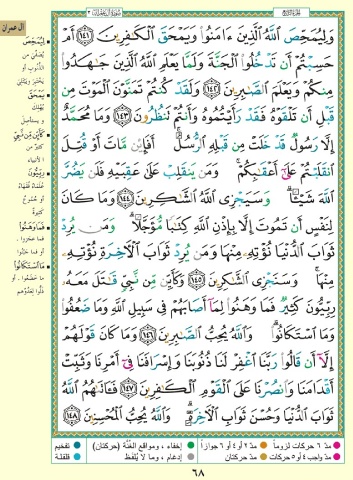 آل عمران
سورة آل عمران ٣
الجزء الرابع
وَلِيُمَحِّصَ اللَّهُ الَّذِينَ ءَامَنُوا وَيَمْحَقَ الْكَٰفِرِينَ ١٤١ أَمْ
حَسِبْتُمْ أَن تَدْخُلُوا الْجَنَّةَ وَلَمَّا يَعْلَمِ اللَّهُ الَّذِينَ جَٰهَدُوا
مِنكُمْ وَيَعْلَمَ الصَّٰبِرِينَ ١٤٢ وَلَقَدْ كُنتُمْ تَمَنَّوْنَ الْمَوْتَ مِن
قَبْلِ أَن تَلْقَوْهُ فَقَدْ رَأَيْتُمُوهُ وَأَنتُمْ تَنظُرُونَ ١٤٣ وَمَا مُحَمَّدٌ
إِلَّا رَسُولٌ قَدْ خَلَتْ مِن قَبْلِهِ الرُّسُلُ ۚ أَفَإِي۟ن مَّاتَ أَوْ قُتِلَ
انقَلَبْتُمْ عَلَىٰ أَعْقَٰبِكُمْ ۚ وَمَن يَنقَلِبْ عَلَىٰ عَقِبَيْهِ فَلَن يَضُرَّ
اللَّهَ شَيْـًٔا ۗ وَسَيَجْزِى اللَّهُ الشَّٰكِرِينَ ١٤٤ وَمَا كَانَ
لِنَفْسٍ أَن تَمُوتَ إِلَّا بِإِذْنِ اللَّهِ كِتَٰبًا مُّؤَجَّلًا ۗ وَمَن يُرِدْ
ثَوَابَ الدُّنْيَا نُؤْتِهِ مِنْهَا وَمَن يُرِدْ ثَوَابَ الْـَٔاخِرَةِ نُؤْتِهِ
مِنْهَا ۚ وَسَنَجْزِى الشَّٰكِرِينَ ١٤٥ وَكَأَيِّن مِّن نَّبِىٍّ قَٰتَلَ مَعَهُ
رِبِّيُّونَ كَثِيرٌ فَمَا وَهَنُوا لِمَا أَصَابَهُمْ فِى سَبِيلِ اللَّهِ وَمَا ضَعُفُوا
وَمَا اسْتَكَانُوا ۗ وَاللَّهُ يُحِبُّ الصَّٰبِرِينَ ١٤٦ وَمَا كَانَ قَوْلَهُمْ
إِلَّا أَن قَالُوا رَبَّنَا اغْفِرْ لَنَا ذُنُوبَنَا وَإِسْرَافَنَا فِى أَمْرِنَا وَثَبِّتْ
أَقْدَامَنَا وَانصُرْنَا عَلَى الْقَوْمِ الْكَٰفِرِينَ ١٤٧ فَـَٔاتَىٰهُمُ اللَّهُ
ثَوَابَ الدُّنْيَا وَحُسْنَ ثَوَابِ الْـَٔاخِرَةِ ۗ وَاللَّهُ يُحِبُّ الْمُحْسِنِينَ ١٤٨
لِيُمَحِّصَ
يَمْحَقَ
كَأَيِّن مِّن نَّبِيٍّ
كثير من
الأنبياء
رِبِّيُّونَ
فَمَا وَهَنُوا
مَا اسْتَكَانُوا
مدّ ٦ حركات لزوماً
مدّ ٢ أو ٤ أو ٦ جوازاً
إخفاء، ومواقع الغُنَّة (حركتان)
تفخيم
مدّ واجب ٤ أو ٥ حركات
مدّ حركتان
إدغام، وما لا يُلفَظ
قلقلة
٦٨